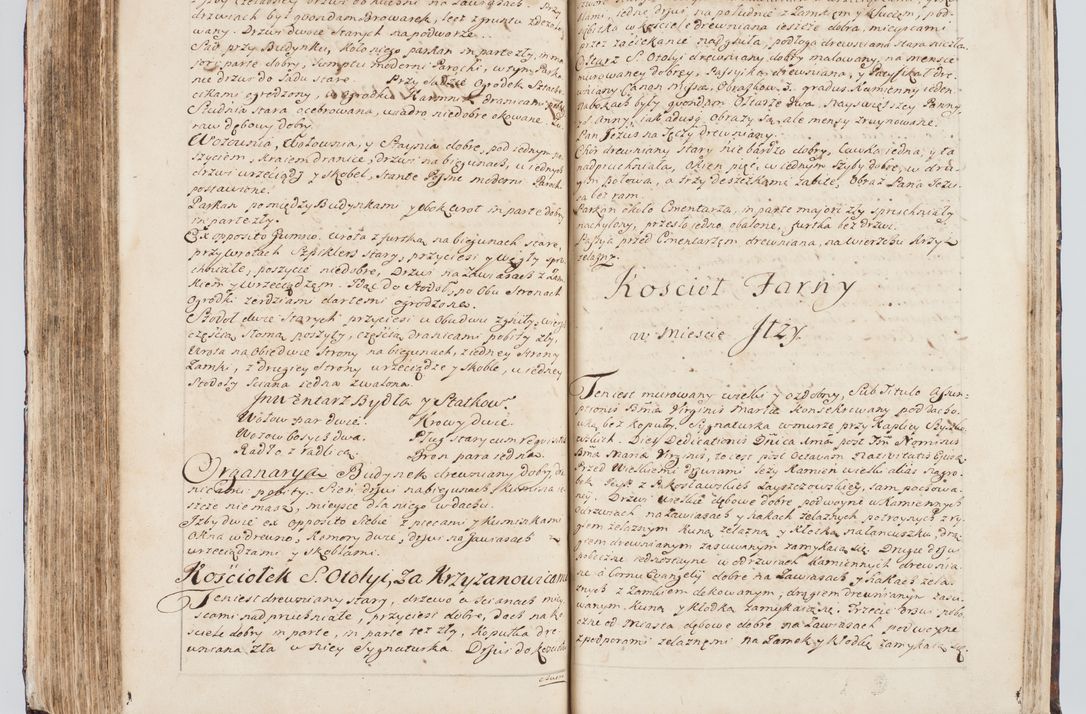 drzwiach był gvondam Browarek, lecz z gruntu
wany. Drzwi dwoie Starych na podworze.
Sad przy Budynku, koło niego parkan in parte zły, in ma
iori parte dobry, sumptu moderni Parochi, w tymże Parka
nie drzwi do Sadu stare. Przy Sadzie Ogrodek Sztache
cikami ogrodzony, w ogrodku Karmnik, dranicami
Studnia stara ocebrowana, wiadro niedobre okowane
raw dębowy dobry.
Wozownia, Wołownia, y Staynia dobre, pod iednym po
szyciem, kraiem dranice, drzwi na biegunach, w iednych
drzwi wrzeciądz y skobel, Stante Ręczne moderni Paroch
postawione.
Parkan pomiędzy Budynkami y obok wrot in parte dobry
in parte zły.
Ex opposito Gumno, wrota z furtką na biegunach stare,
przy wrotach Szpiklerz stary, przyciesi y węgły spru
chniałe, poszycie niedobre, Drzwi na zawiasach z zam
kiem y wrzeciądzem. Idąc do Stodoł, po Obu Stronach
Ogrodki żerdziami dartemi ogrodzone.
Stodoł dwie Starych przyciesi u Obudwu zgniły, wiązi
częścią słomą poszyty, częścią dranicami pobity zły,
Wrota na Obiedwie Strony na biegunach, z iedney Strony
Zamki, z drugiey Strony wrzeciądze y skoble, u iedney
Stodoły sciana iedna zwalona.
Inwentarz Bydła y Statkow
Wołow par dwie. Krowy dwie.
Wozow bosych dwa. Pług stary cum
Radło z radlicą. Bron para iedna.
Organarya Budynek drewniany dobry, dra
nicami pobity. Sień drzwi na biegunach, kumina ie
szcze nie masz, mieysce dla niego w dachu.
Izby dwie ex opposito Siebie z piecami y kuminkami
Okna w drewno, komory dwie, drzwi na zawiasach z
wrzeciądzami y skoblami.
Kościołek S. Otolyi, za Krzyżanowicami
Ten iest drewniany stary, drzewo w ścianach miey
scami nad prochniałe, przyciesi dobre, dach na ko
sciele dobry in parte, in parte też zły, Kopułka dre
wniana zła w niey Sygnaturka. Drzwi do kościoła
łami, iedne drzwi na południe z zamkiem y kluczem, pod
sębitka w kościele drewniana ieszcze dobra, mieyscami
przez zaciekanie nadgniła, podłoga drewniana stara nie zła.
Ołtarz S. Otolyi drewniany dobry malowany, na mensie
murowaney dobrey, Passyika drewniana, y Pacyfikał dre
wniany Canon Missæ, Obrazkow 3. gradus Kamienny ieden.
Na bokach były gvondam Ołtarze dwa, Nayswiętszey Panny
y S. Anny, iakadusq Obrazy są, ale mensy zruynowane.
Pan Jezus na Tęczy drewniany.
Chor drewniany stary nie bardzo dobry, ławka iedna, y ta
nadpruchniała, Okien pięć, w iednym szyby dobre, w dru
gim Połowa, a trzy deszczkami zabite, Obraz Pana Jezu
sa bez ram.
Parkan około Cmentarza, in parte majori zły spruchniały
nachylony, przesło iedno obalone, furtka bez drzwi.
Passya przed Cmentarzem drewniana, na wierzchu Krzyż
żelazny.
Kościoł Farny
w Mieście Iłży.
Ten iest murowany wielki y ozdobny, Sub Titulo Assum
ptionis Bmæ Virginis Mariæ konsekrowany, pod dachow
ką, bez kopuły, Sygnaturka w murze przy Kaplicy
wskich. Dies Dedicationis Dnica ima post Fm Nominis
Bmæ Mariæ Virginis, to iest post Octavam Nativitatis Ejusd.
Przed Wielkiemi Drzwiami leży Kamień wielki alias Nagro
bek z Mikosławskich Zayszczowskiey, sam pochowa
ny. Drzwi wielkie dębowe dobre podwoyne w kamiennych
odrzwiach na zawiasach y hakach żelaznych potroynych z ry
glem żelaznym kuną żelazną y kłotką na łancuszku, drą
giem drewnianym zasuwanym zamykaią się. Drugie drzwi
poboczne iednostayne w odrzwiach kamiennych drewnia
ne à Cornu Evangely dobre na zawiasach y hakach żela
znych z zamkiem okowanym, drągiem drewnianym zasu
wanym kuną y kłodką zamykaią się. Trzecie drzwi pobo
czne od Miasta dębowe dobre na zawiasach podwoyne
z podporami żelaznemi na Zamek y Kłodkę zamykaią się.